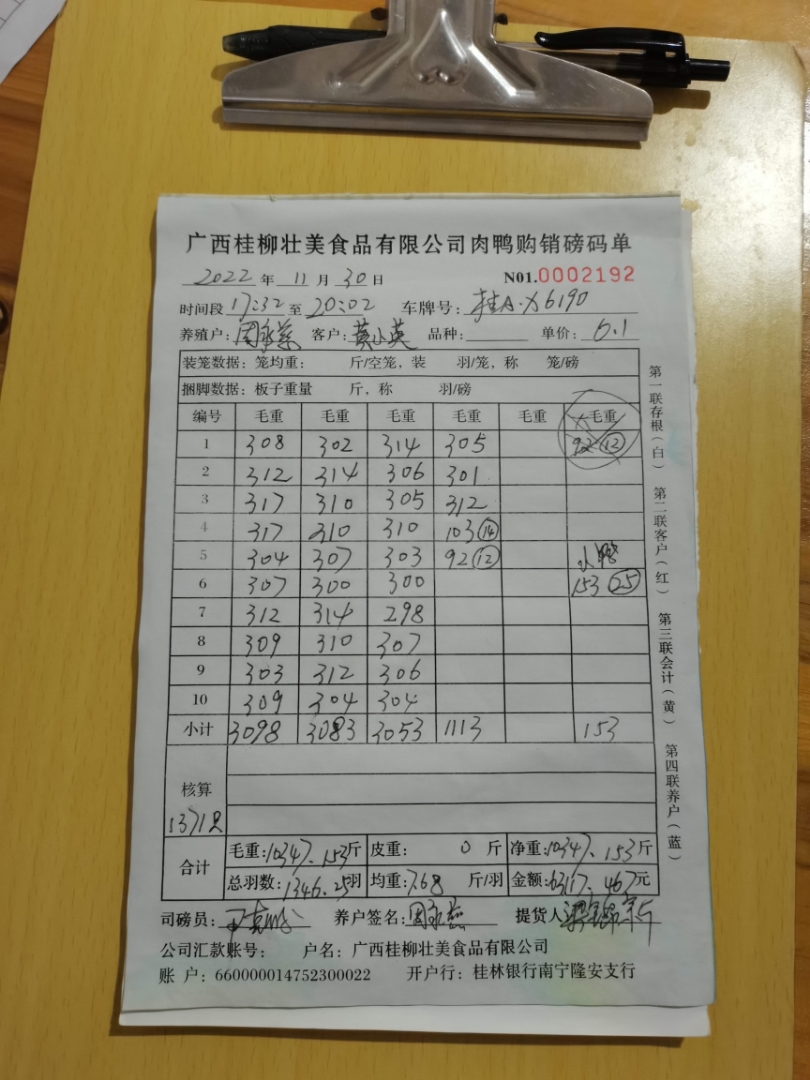 广西桂柳壮美食品有限公司肉鸭购销磅码单
2022 年 11 月 30 日 N01.0002192
时间段 17:32 至 20:02 车牌号: 桂A·X6190
养殖户: 客户: 黄小英 品种: 单价: 6.1
装笼数据: 笼均重: 斤/空笼, 装 羽/笼, 称 笼/磅
捆脚数据: 板子重量 斤, 称 羽/磅
编号 毛重 毛重 毛重 毛重 毛重 毛重
1 308 302 314 305 92 (12)
2 312 314 306 301
3 317 310 305 312
4 317 310 310 103 (14)
5 304 307 303 92 (12) 小鸭
6 307 300 300 153 (25)
7 312 314 298
8 309 310 307
9 303 312 306
10 309 304 304
小计 3098 3083 3053 1113 153
核算
1371只
合计 毛重: 10347、153斤 皮重: 0 斤 净重: 10347、153斤
总羽数: 1346、25羽 均重: 7.68 斤/羽 金额: 63117、467元
司磅员: 养户签名: 提货人
公司汇款账号: 户名: 广西桂柳壮美食品有限公司
账 户: 660000014752300022 开户行: 桂林银行南宁隆安支行
第一联存根(白) 第二联客户(红) 第三联会计(黄) 第四联养户(蓝)